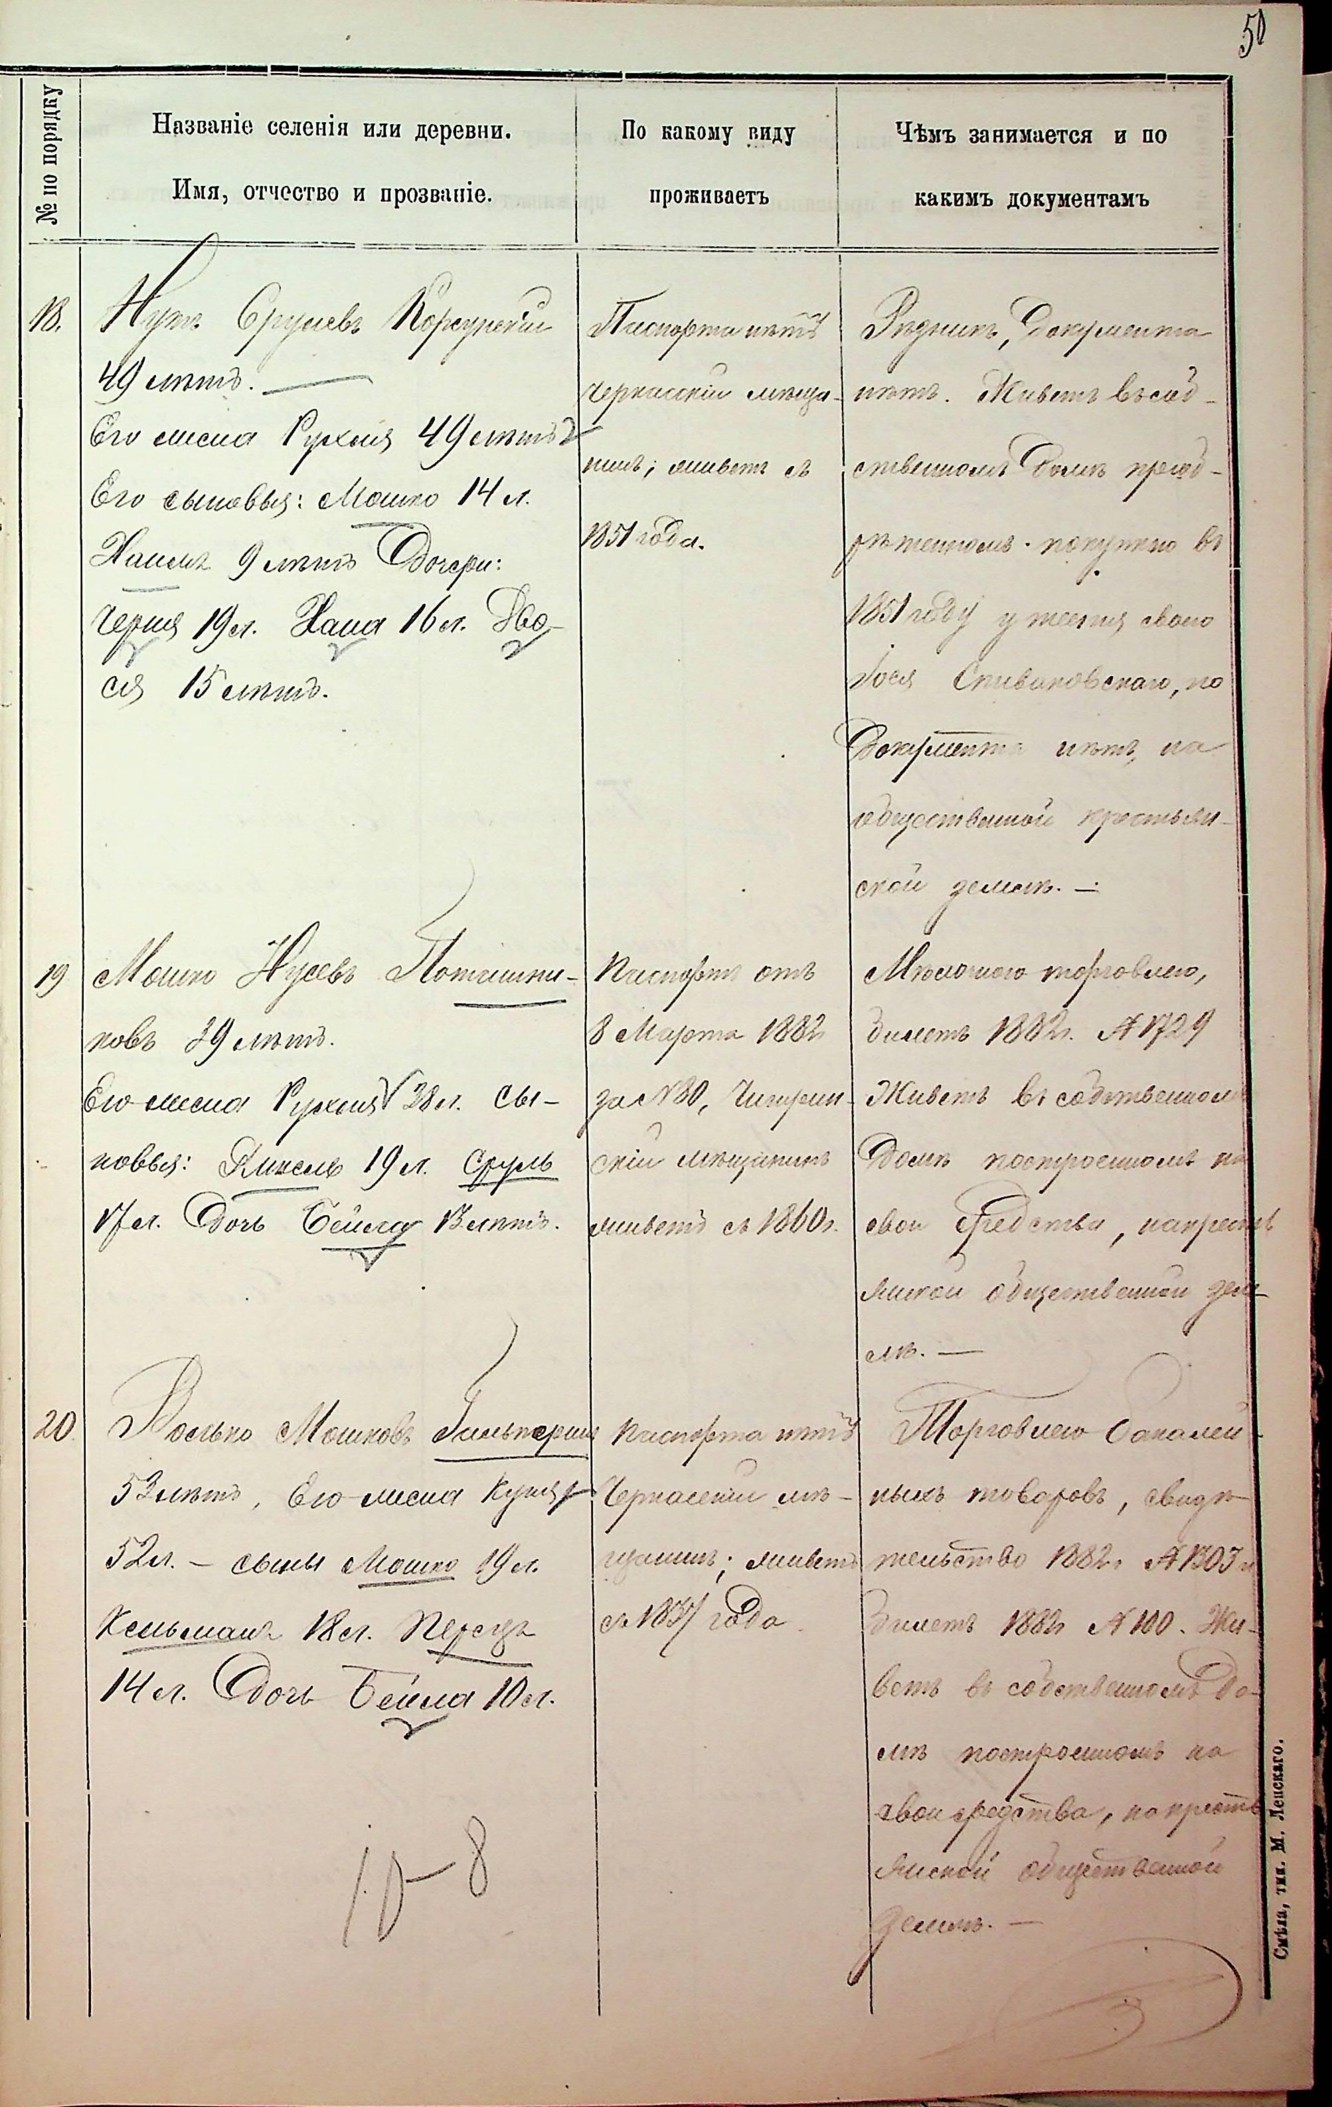 50
№ по порядку
Названіе селенія или деревни.
Имя, отчество и прозваніе.
По какому виду
проживаетъ
Чѣмъ занимается и по
какимъ документамъ
18.
Нутъ Срулевъ Корсунскій
49 лѣтъ. —
Его жена Рухля 49 лѣтъ
Его сыновья: Мошко 14 л.
Хаимъ 9 лѣтъ Дочери:
Черня 19 л. Хана 16 л. Дво-
ся 15 лѣтъ.
Паспорта нѣтъ
Черкасскій мѣща-
нинъ; живетъ съ
1851 года.
Рѣзникъ, документа
нѣтъ. Живетъ въ соб-
ственномъ домѣ пріоб-
рѣтенномъ покупкою въ
1851 году у тестя своего
Іося Спиваковскаго, но
документа нѣтъ, на
общественной крестьян-
ской землѣ. —
19
Мошко Нусевъ Поташни-
ковъ 39 лѣтъ.
Его жена Рухля 38 л. Сы-
новья: Кисель 19 л. Сруль
17 л. Дочь Бейла 13 лѣтъ.
Паспортъ отъ
8 Марта 1882
за № 30, Чигирин-
скій мѣщанинъ
живетъ съ 1860 г.
Мѣлочною торговлею,
билетъ 1882 г. № 1729
Живетъ въ собственномъ
домѣ построенномъ на
свои средства, на кресть
янской общественной зем-
лѣ. —
20
Волько Мошковъ Гальперинъ
53 лѣтъ, Его жена Куня
52 л. – сыны Мошко 19 л.
Кельманъ 18 л. Перецъ
14 л. Дочь Бейла 10 л.
Паспорта нѣтъ
Черкасскій мѣ-
щанинъ; живетъ
съ 1837 года
Торговлею бакалей-
ныхъ товаровъ, свидѣ-
тельство 1882 г № 1303 и
билетъ 1882 № 100. Жи-
ветъ въ собственномъ до-
мѣ построенномъ на
свои средства, на кресть
янской общественной
землѣ. —
10-8
Смѣла, тип. М. Ленскаго.